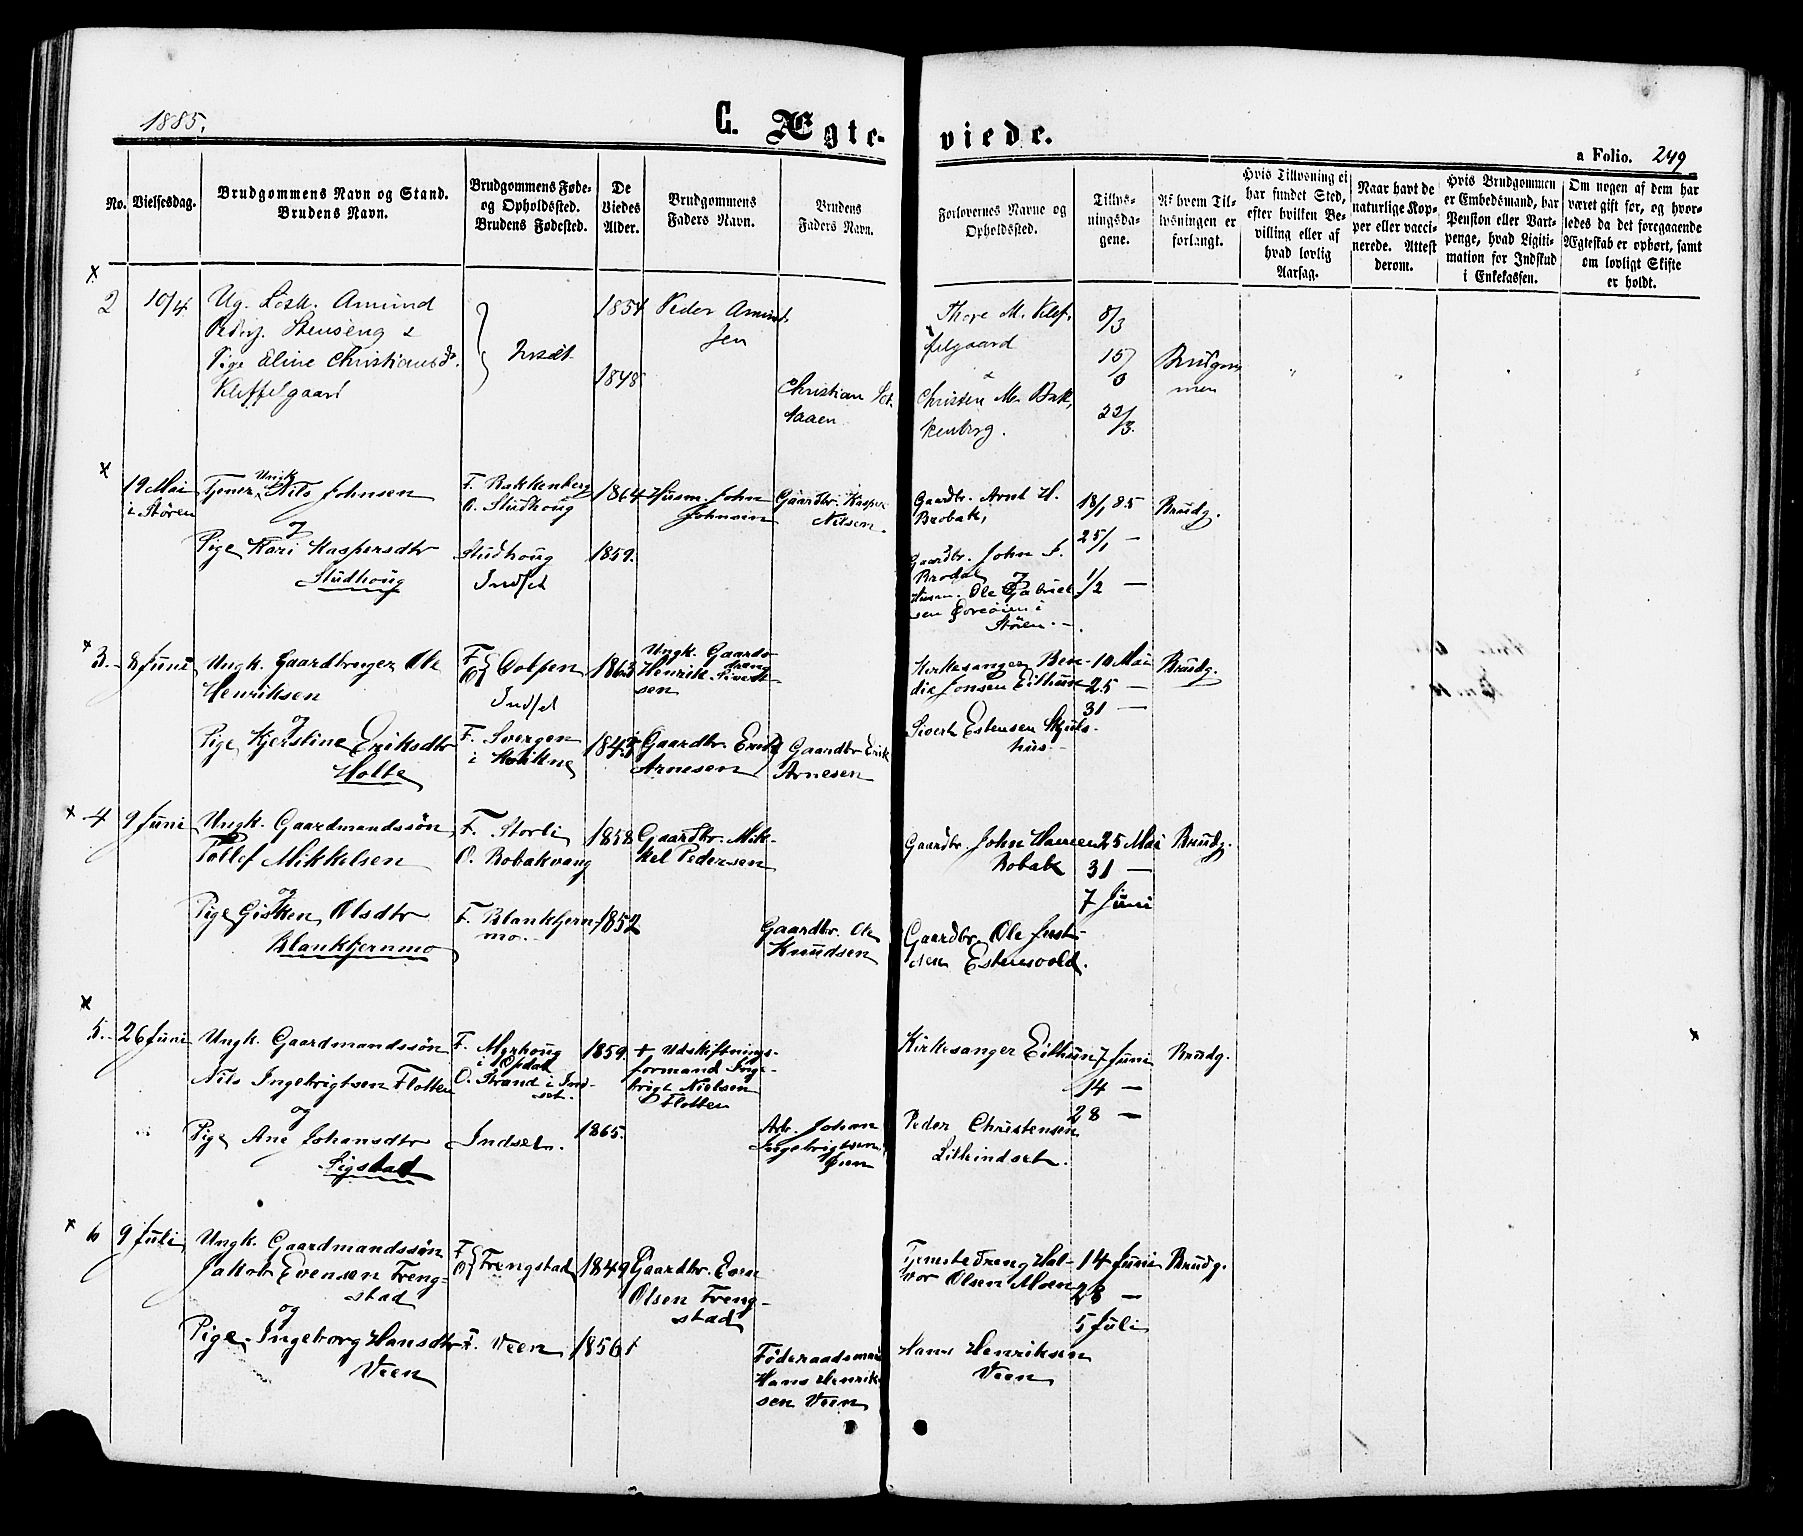 1885.
C. Ægte-
viede.
a Folio. 249
No.
Vielsesdag.
Brudgommens Navn og Stand.
Brudens Navn.
Brudgommens Føde-
og Opholdssted.
Brudens Fødested.
De
Viedes
Alder.
Brudgommens
Faders Navn.
Brudens
Faders Navn.
Forlovernes Navne og
Opholdssted.
Tillys-
ningsda-
gene.
Af hvem Til-
lysningen er
forlangt.
Hvis Tillysning ei
har fundet Sted,
efter hvilken Be-
villing eller af
hvad lovlig
Aarsag.
Naar havt de
naturlige Kop-
per eller vacci-
nerede. Attest
derom.
Hvis Brudgommen
er Embedsmand, har
Pension eller Vart-
penge, hvad Ligiti-
mation for Indskud
i Enkekassen.
Om nogen af dem har
været gift før, og hvor-
ledes da det foregaaende
Ægteskab er ophørt, samt
om lovligt Skifte
er holdt.
x
2
10/4
Ug. Amund
Pedersen Stenseng &
Pige Eline Christiansd.
Kleffelgaard
Insæt
1854
1848
Peder Amund
sen
Christian
Thore M. Klef
felgaard
Christen M. Bak
kenberg.
8/3
15/3
22/3.
Brudgom
men
x
19 Mai
i Støren
Tjener Ungk Nils Johnsen
og
Pige Kari Kaspersdtr
Studhoug
F. Bakkenberg
O. Studhoug
Studhoug
Indset
1864
1859.
Husm. John
Johnsen
Gaardbr. Kasper
Nilsen.
Gaardbr. Arnt H.
Brobak,
Gaardbr. John
og
Husm. Ole Gabriel
sen i
Støren.
18/1 85
25/1 —
1/2 —
Brudg.
x
3.
8 Juni
Ungk. Gaardbruger Ole
Henriksen
og
Pige Kjerstine Eriksdtr
Holte
F. O. Dolpen
Indset
F. Svergen
i Kvikne
1863
1843
Ungk. Gaards-
dreng
Henrik Sivert-
sen
Gaardbr. Erik
Arnesen
Gaardbr. Erik
Arnesen
Kirkesanger Ben-
dix Jonsen Eithun
Sivert Estensen Skjuls-
hus.
10 Mai
25 —
31 —
Brudg.
x
4
9 Juni
Ungk. Gaardmandssøn
Tollef Mikkelsen
og
Pige Gisken Olsdtr
Blankkjernmo
F. Storli
O. Bobakvang
F. Blankkjern
mo.
1858
1852
Gaardbr. Mik-
kel Pedersen
Gaardbr. Ole
Knudsen
Gaardbr. John Hansen
Bobak
Gaardbr. Ole Jost-
sen Estensvold.
25 Mai
31 —
7 Juni
Brudg.
x
5.
26 Juni
Ungk. Gaardmandssøn
Nils Ingebrigtsen Flotten
og
Pige Ane Johansdtr
Sigstad
F. Myrhoug
i Opdal
O. Strand i Ind-
set.
Indset.
1859.
1865.
+ Udskiftnings-
formand Inge-
brigt Nielsen
Flotten
Arb. Johan
Ingebrigtsen
Kirkesanger Eithun
Peder Christensen
Litleindset.
7 Juni
14 —
28 —
Brudg.
x
x
6
9 Juli
Ungk. Gaardmandssøn
Jakob Evensen Freng-
stad
og
Pige Ingeborg Hansdtr
Veen
F. O. Frengstad
F. Veen
1849
1856
Gaardbr. Even
Olsen Freng-
stad
Føderaadsmand
Hans Henrik
sen Veen
Tjenestedreng Hal-
vor Olsen Moen
Hans Henriksen
Veen
14 Juni
28 —
5 Juli
Brudg.